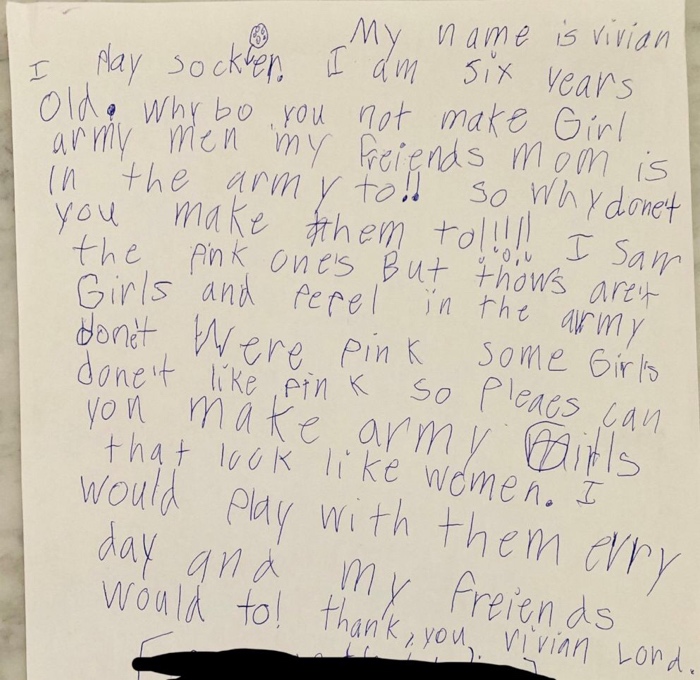 My name is vivian
I play socker. I am six years
Old. Why bo you not make Girl
army men my freiends mom is
in the army to!! so why done't
you make them to!!!!! I saw
the pink ones But thows are't
Girls and pepel in the army
done't Were pink some Girls
done't like pink so pleaes can
you make army Girls
that look like women. I
would play with them evry
day and my freiends
would to! thank, you, vivian Lord.